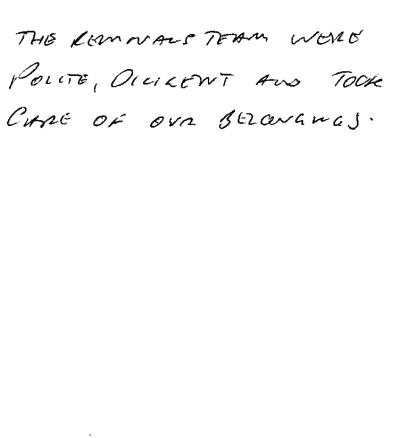 THE REMOVALS TEAM WERE
POLITE, DILIGENT AND TOOK
CARE OF OUR BELONGINGS.